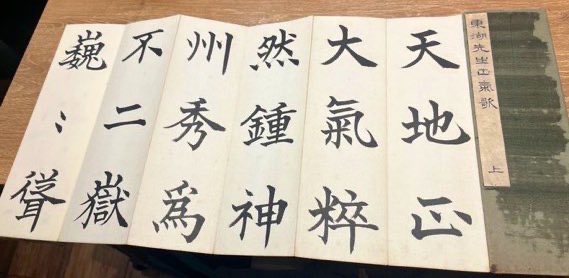 東湖先生正氣歌 上
天地正
大氣粹
然鍾神
州秀爲
不二嶽
巍〻聳